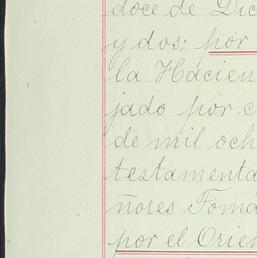 doce de Dic
y dos; por
la Hacien
jado por c
de mil och
testamenta
ñores Toma
por el Orien